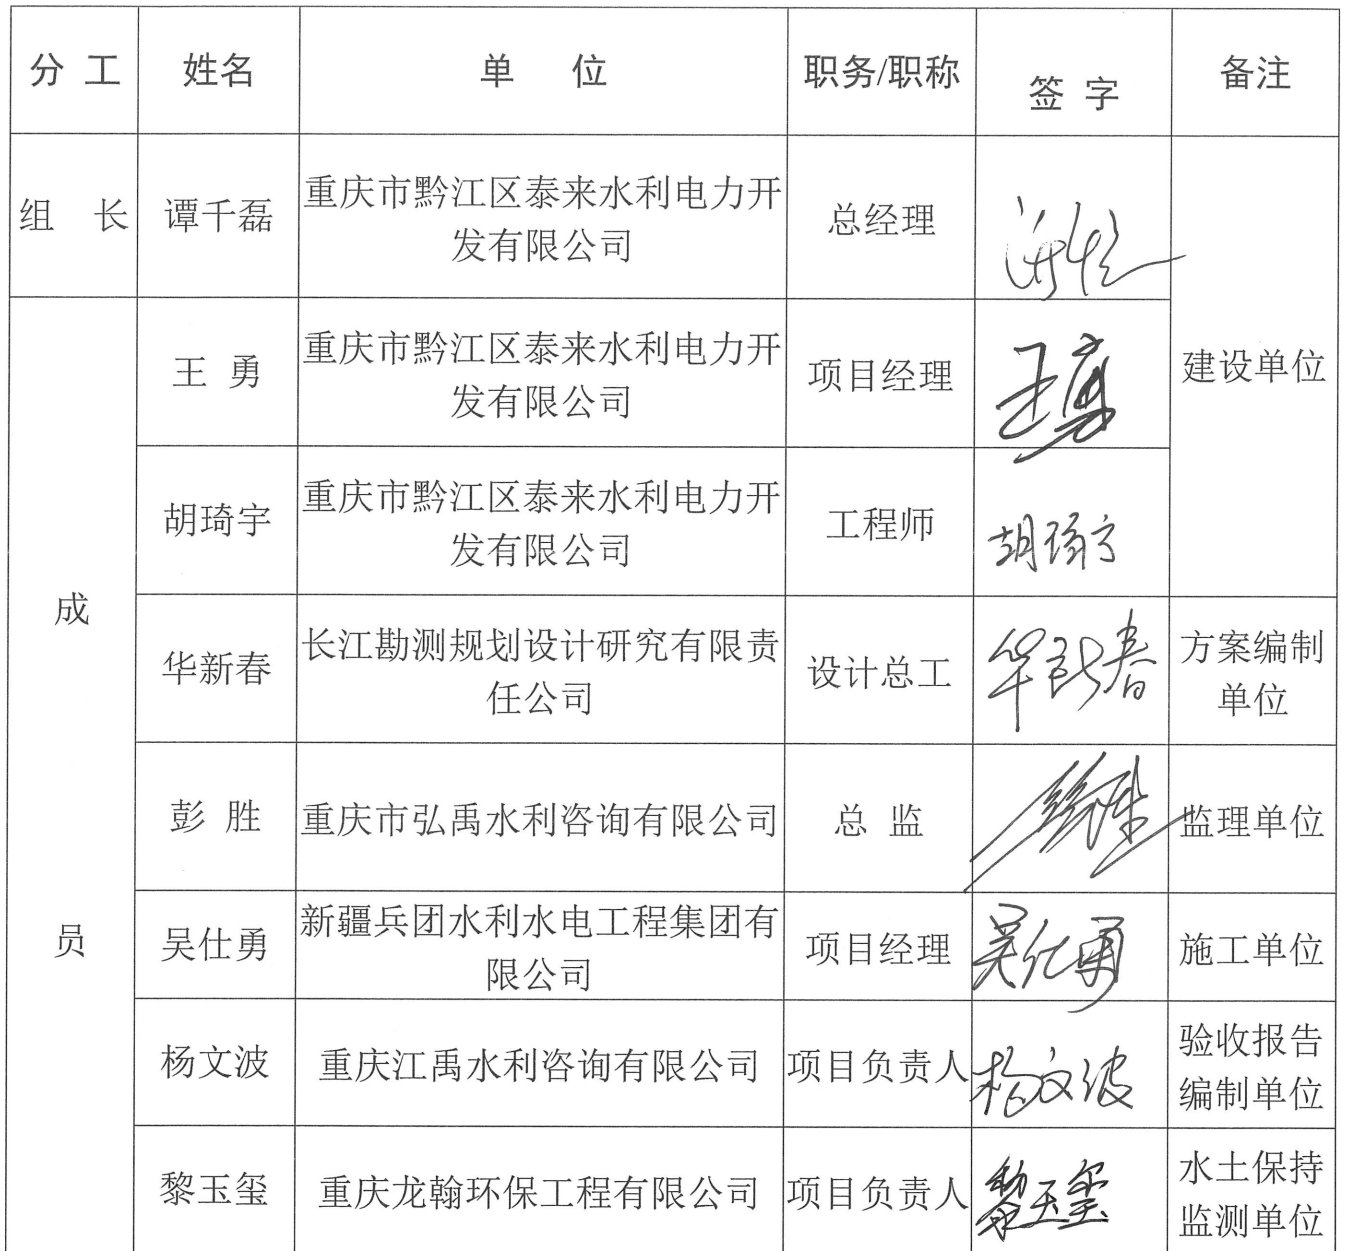 分 工 姓名 单 位 职务/职称 签 字 备注
组 长 谭千磊 重庆市黔江区泰来水利电力开
发有限公司 总经理
成
员
王 勇 重庆市黔江区泰来水利电力开
发有限公司 项目经理 王勇 建设单位
胡琦宇 重庆市黔江区泰来水利电力开
发有限公司 工程师 胡琦宇
华新春 长江勘测规划设计研究有限责
任公司 设计总工 华新春 方案编制
单位
彭 胜 重庆市弘禹水利咨询有限公司 总 监 彭胜 监理单位
吴仕勇 新疆兵团水利水电工程集团有
限公司 项目经理 吴仕勇 施工单位
杨文波 重庆江禹水利咨询有限公司 项目负责人 杨文波 验收报告
编制单位
黎玉玺 重庆龙翰环保工程有限公司 项目负责人 黎玉玺 水土保持
监测单位